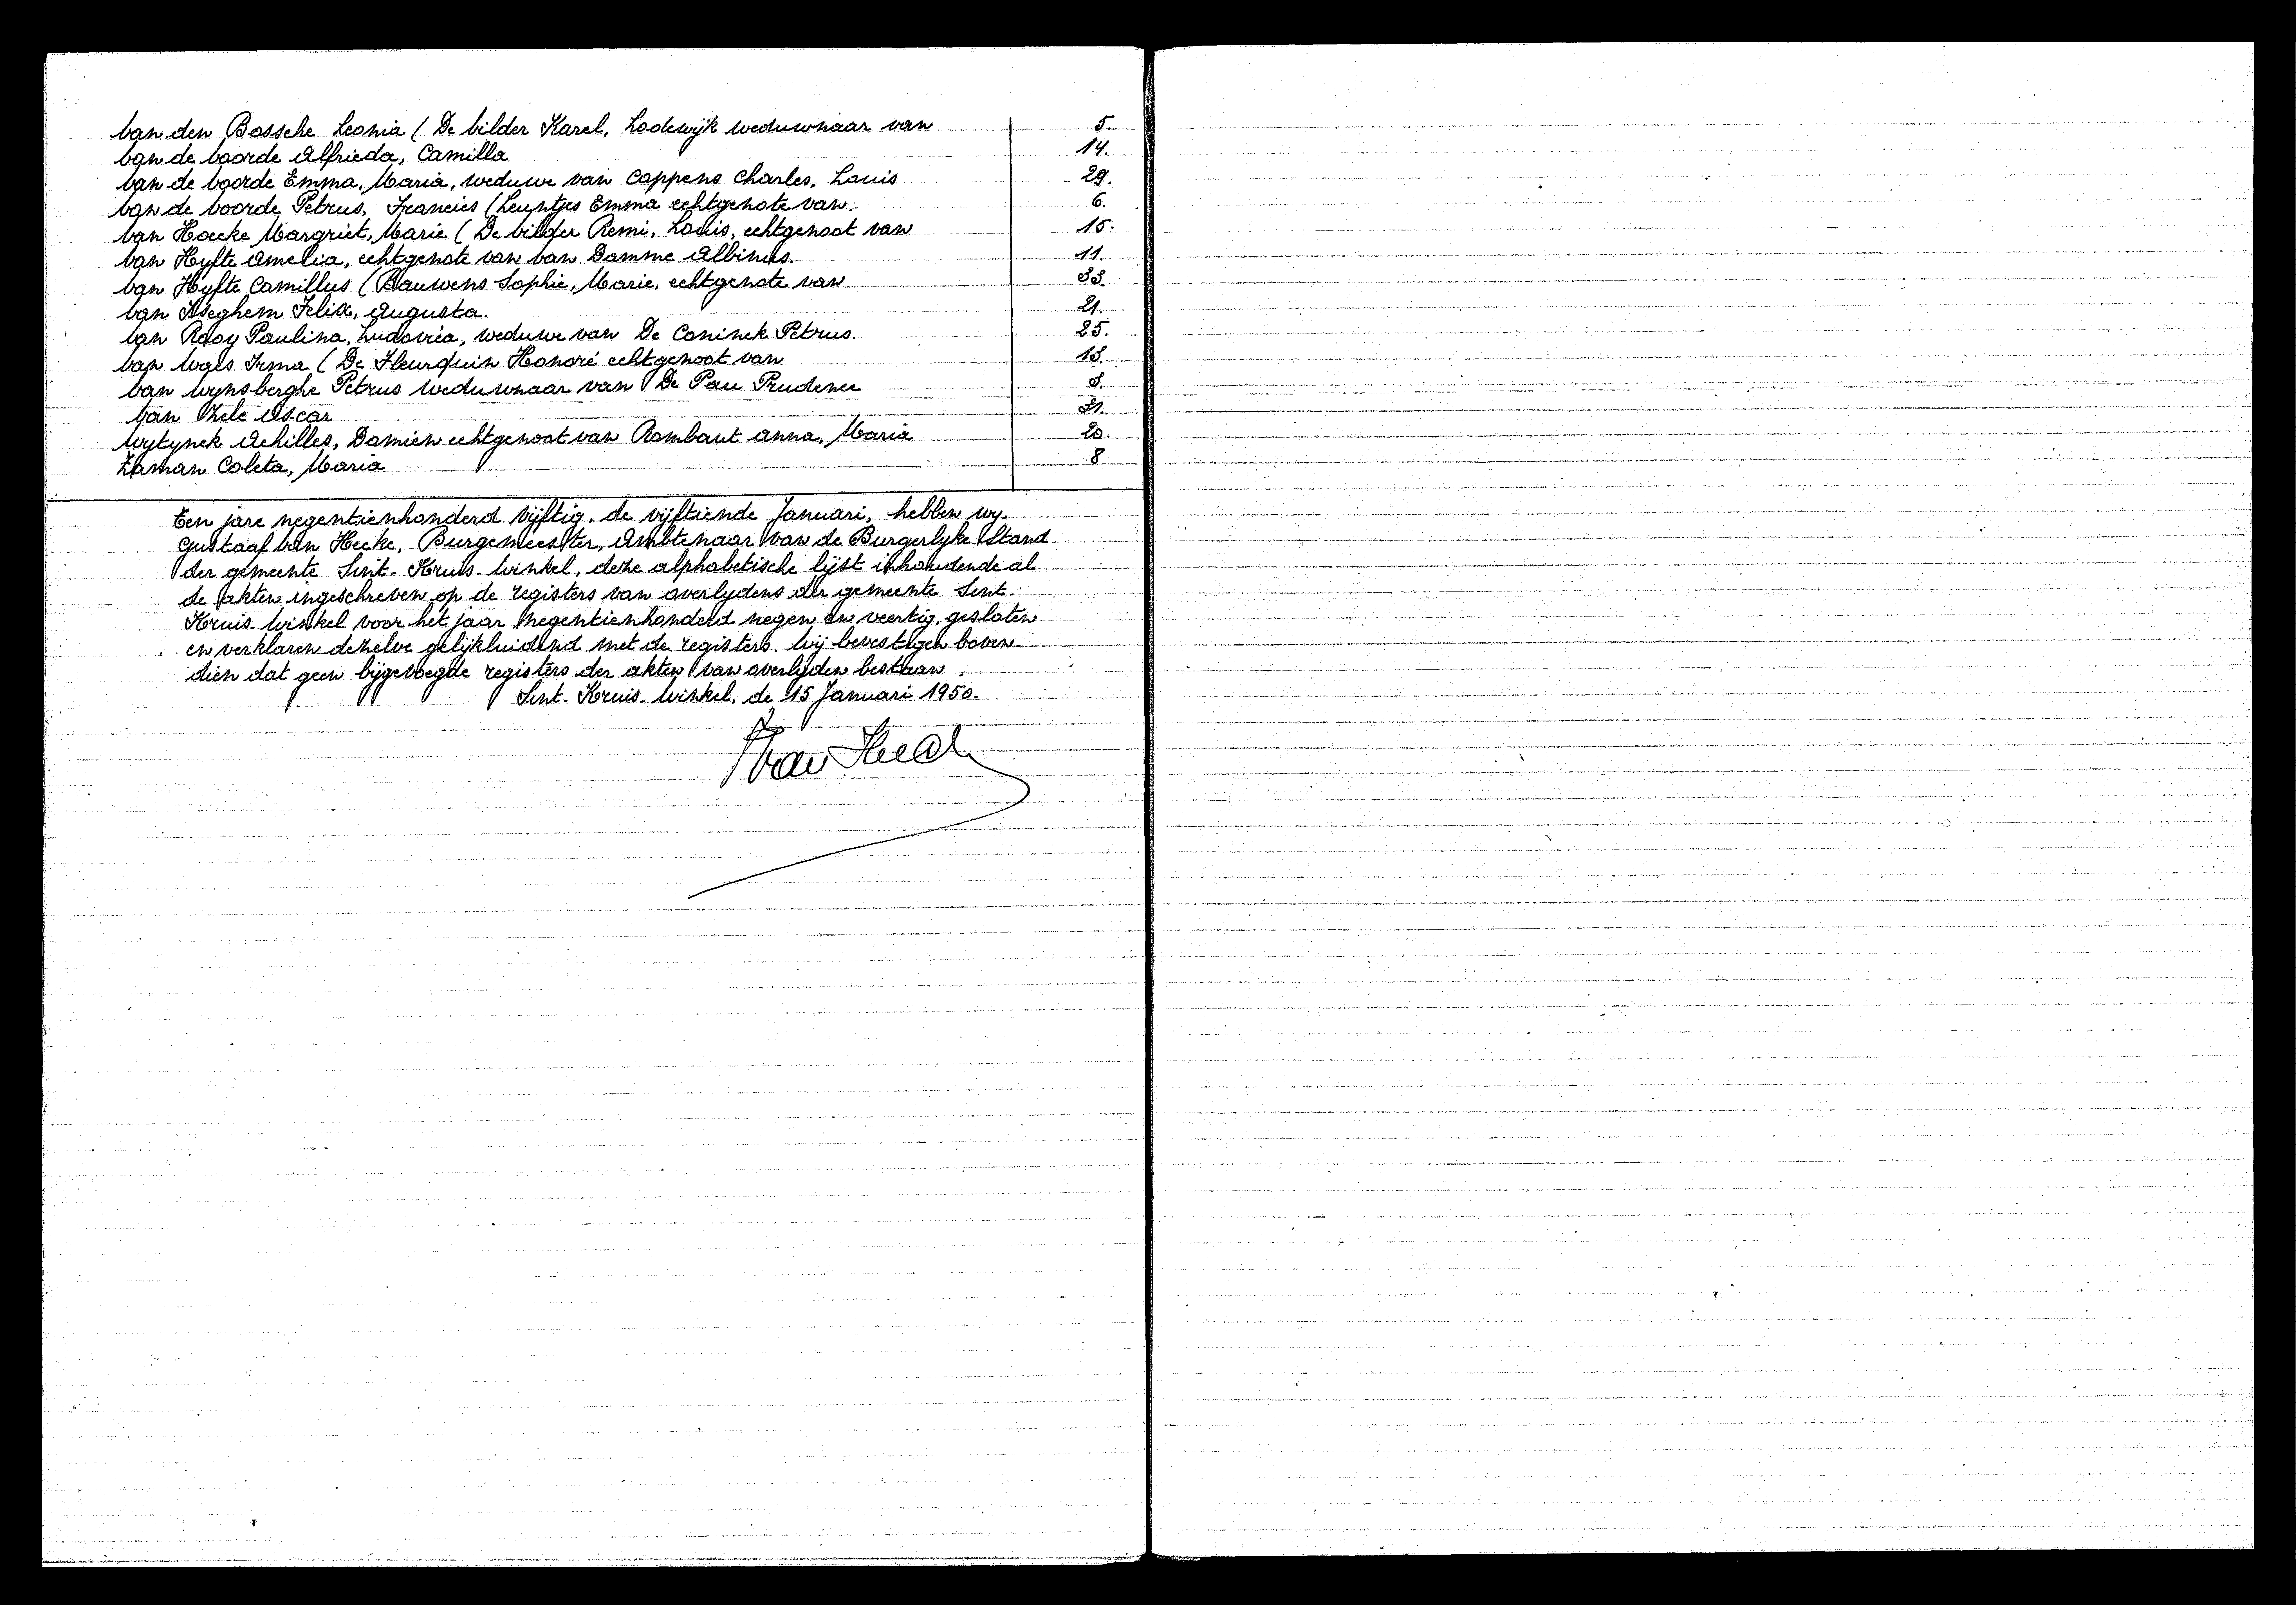 Van den Bossche Leonia ( De Vilder Karel, Lodewijk weduwnaar van 5.
Van de Voorde Alfrieda, Camilla 14.
Van de Voorde Emma, Maria, weduwe van Coppens Charles, Louis 29.
Van de Voorde Petrus, Francies ( Leyntjes Emma echtgenote van. 6.
Van Hoecke Margriet, Marie ( De Vilder Remi, Louis, echtgenoot van 15.
Van Hyfte Amelia, echtgenote van Van Damme Albinus. 11.
Van Hyfte Camillus ( Bauwens Sophie, Marie, echtgenote van 33.
Van Iseghem Felix, Augusta. 21.
Van Rooy Paulina, Ludovica, weduwe van De Coninck Petrus. 25.
Van Waes Irma ( De Fleurquin Honoré echtgenoot van 13.
Van Wynsberghe Petrus weduwnaar van De Pau Prudence 3.
Van Zele Oscar 31.
Wytynck Achilles, Damien echtgenoot van Rombaut Anna, Maria 20.
Zaman Coleta, Maria 8
Een jare negentienhonderd vijftig, de vijftiende Januari, hebben wy.
Gustaaf Van Hecke, Burgemeester, Ambtenaar van de Burgerlyke Stand
der gemeente Sint-Kruis-Winkel, deze alphabetische lijst inhoudende al
de akten ingeschreven op de registers van overlydens der gemeente Sint-
Kruis-Winkel voor het jaar negentienhonderd negen en veertig, gesloten
en verklaren dezelve gelijkluidend met de registers. Wij bevestigen boven-
dien dat geen bijgevoegde registers der akten van overlyden bestaan.
Sint-Kruis-Winkel, de 15 Januari 1950.